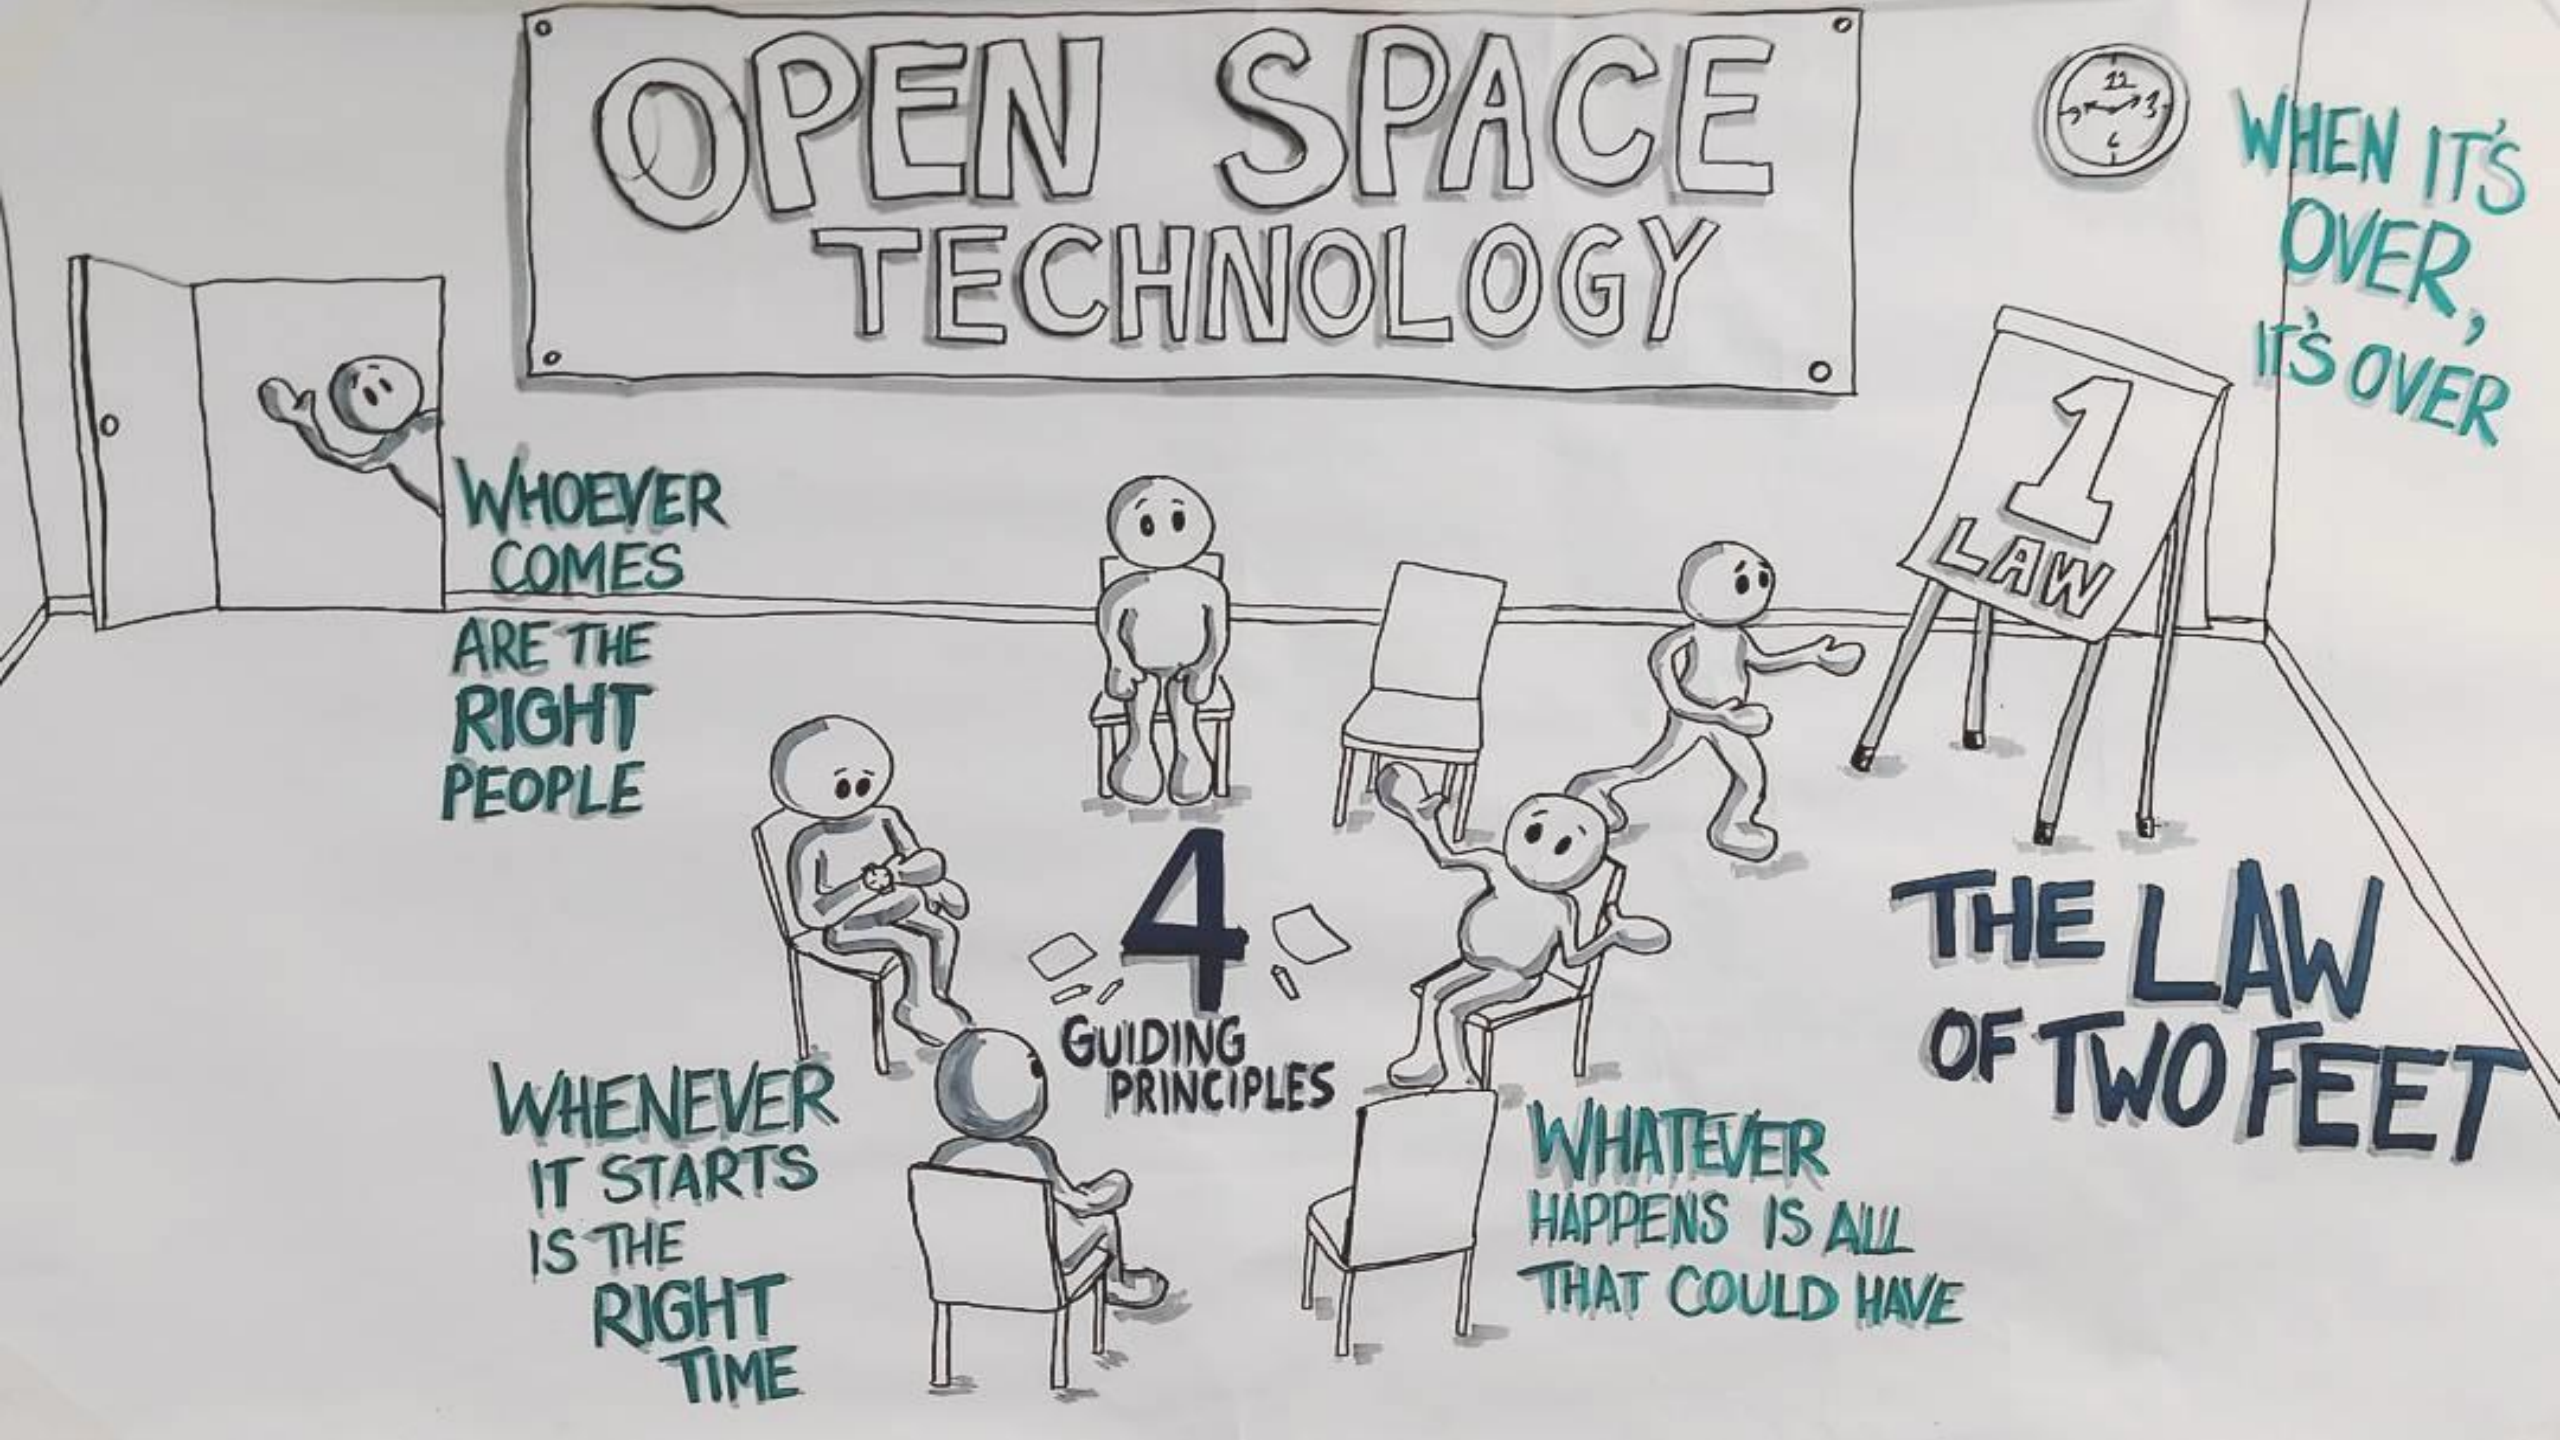 OPEN SPACE
TECHNOLOGY
12
9 3
6
WHEN IT'S
OVER,
IT'S OVER
1
LAW
WHOEVER
COMES
ARE THE
RIGHT
PEOPLE
4
GUIDING
PRINCIPLES
THE LAW
OF TWO FEET
WHENEVER
IT STARTS
IS THE
RIGHT
TIME
WHATEVER
HAPPENS IS ALL
THAT COULD HAVE